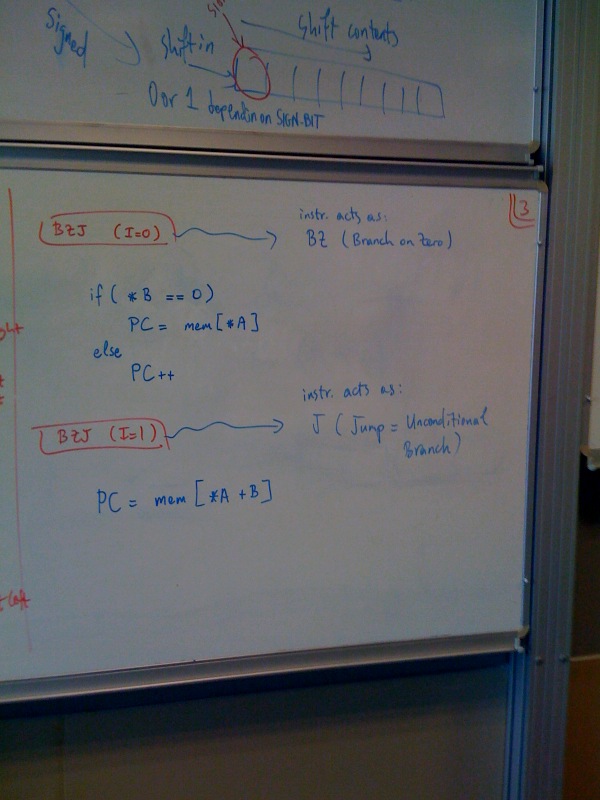 Signed
Shift in
Shift contents
0 or 1 dependin on SIGN-BIT
3
BZJ (I=0)
instr. acts as:
BZ (Branch on Zero)
if ( *B == 0)
PC = mem[*A]
else
PC++
BZJ (I=1)
instr. acts as:
J (Jump = Unconditional
Branch)
PC = mem [*A + B]